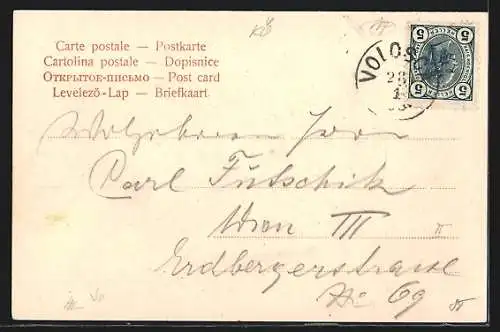 Carte postale — Postkarte
Cartolina postale — Dopisnice
Открытое-письмо — Post card
Levelező-Lap — Briefkaart
VOLOS
5 5
5 5
Wolgeboren Herrn
Carl Futschik
Wien III
Erdbergerstrasse
No 69